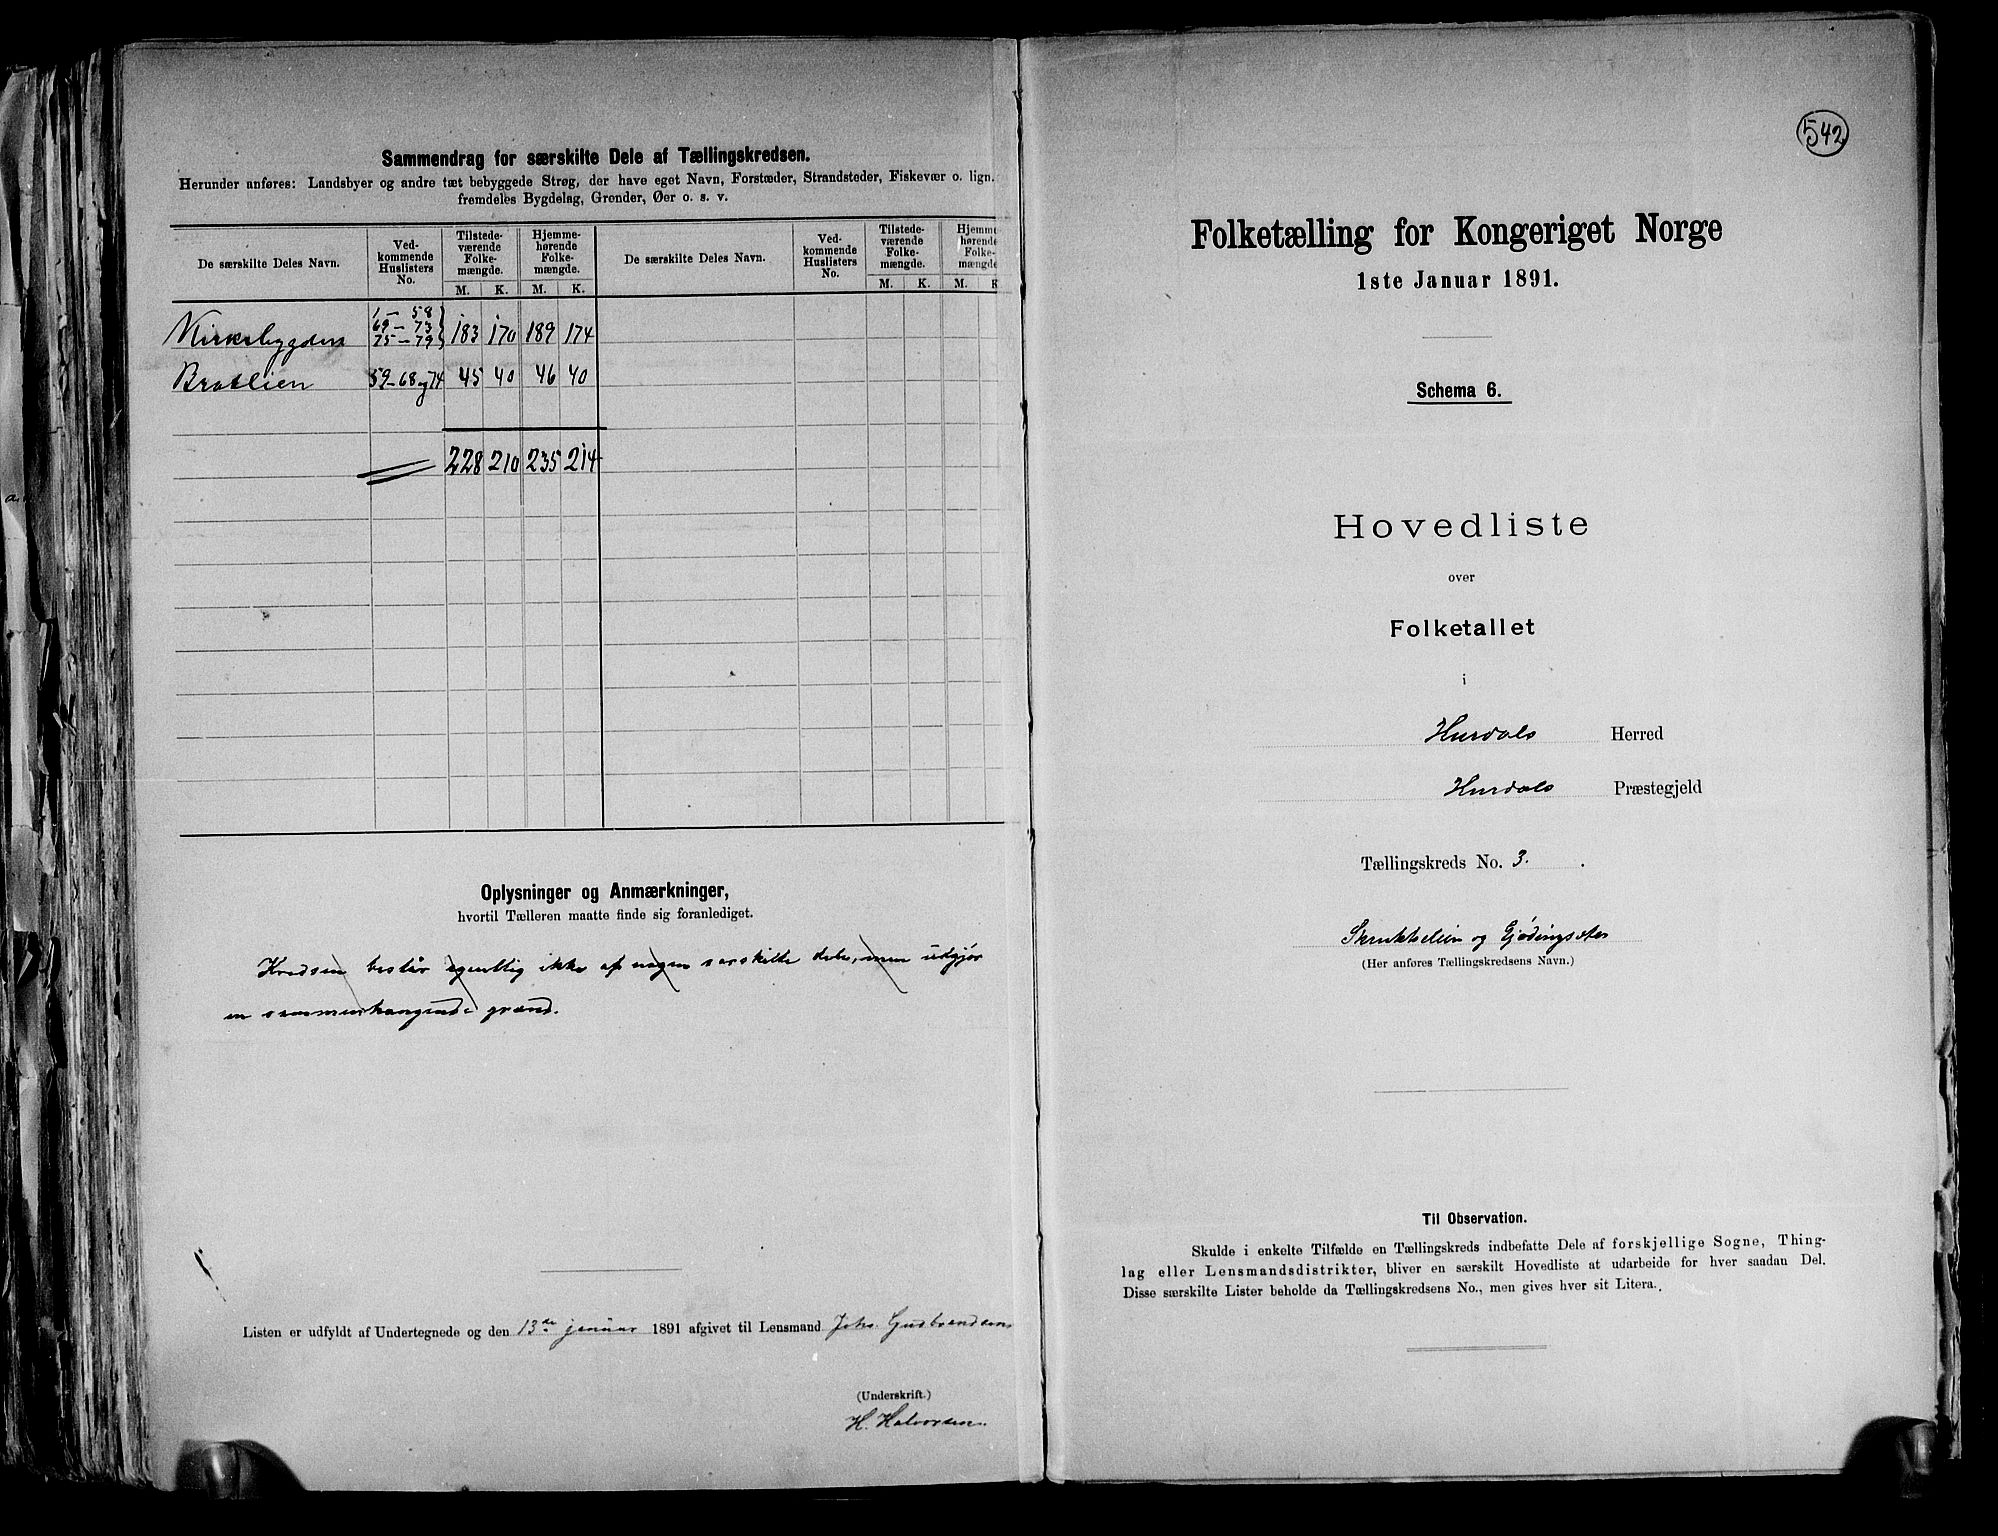 Sammendrag for særskilte Dele af Tællingskredsen.
Herunder anføres: Landsbyer og andre tæt bebyggede Strøg, der have eget Navn, Forstæder, Strandsteder, Fiskevær o. lign.
fremdeles Bygdelag, Grender, Øer o. s. v.
De særskilte Deles Navn. Ved-kommende Huslisters No. Tilstede-værende Folke-mængde. Hjemme-hørende Folke-mængde. De særskilte Deles Navn. Ved-kommende Huslisters No. Tilstede-værende Folke-mængde. Hjemme-hørende Folke-mængde
M. K. M. K. M. K. M. K
1 - 58
69 - 73
Kirkebygden 75 - 79 183 170 189 174
Bratlien 59 - 68 og 74 45 40 46 40
228 210 235 214
Oplysninger og Anmærkninger,
hvortil Tælleren maatte finde sig foranlediget.
Kredsen består egentlig ikke af nogen særskilte dele, men udgjør
en sammenhængende grænd.
Listen er udfyldt af Undertegnede og den 13de januar 1891 afgivet til Lensmand Johs. Gudbrandsen
(Underskrift.)
H. Halvorsen.
542
Folketælling for Kongeriget Norge
1ste Januar 1891.
Schema 6.
Hovedliste
over
Folketallet
i
Hurdals Herred
Hurdals Præstegjeld
Tællingskreds No. 3.
Skrukkelien og Gjødingsæter
(Her anføres Tællingskredsens Navn.)
Til Observation.
Skulde i enkelte Tilfælde en Tællingskreds indbefatte Dele af forskjellige Sogne, Thing-
lag eller Lensmandsdistrikter, bliver en særskilt Hovedliste at udarbeide for hver saadan Del.
Disse særskilte Lister beholde da Tællingskredsens No., men gives hver sit Litera.